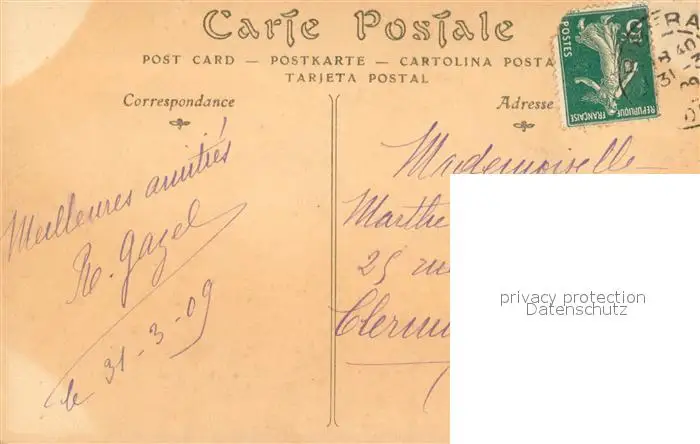 Carte Postale
POST CARD — POSTKARTE — CARTOLINA POSTA
TARJETA POSTAL
Correspondance
Adresse
POSTES
REPUBLIQUE FRANÇAISE
Meilleures amitiés
R. Gazel
le 31-3-09
Mademoiselle
Marthe
25 rue
Clermo
privacy protection
Datenschutz